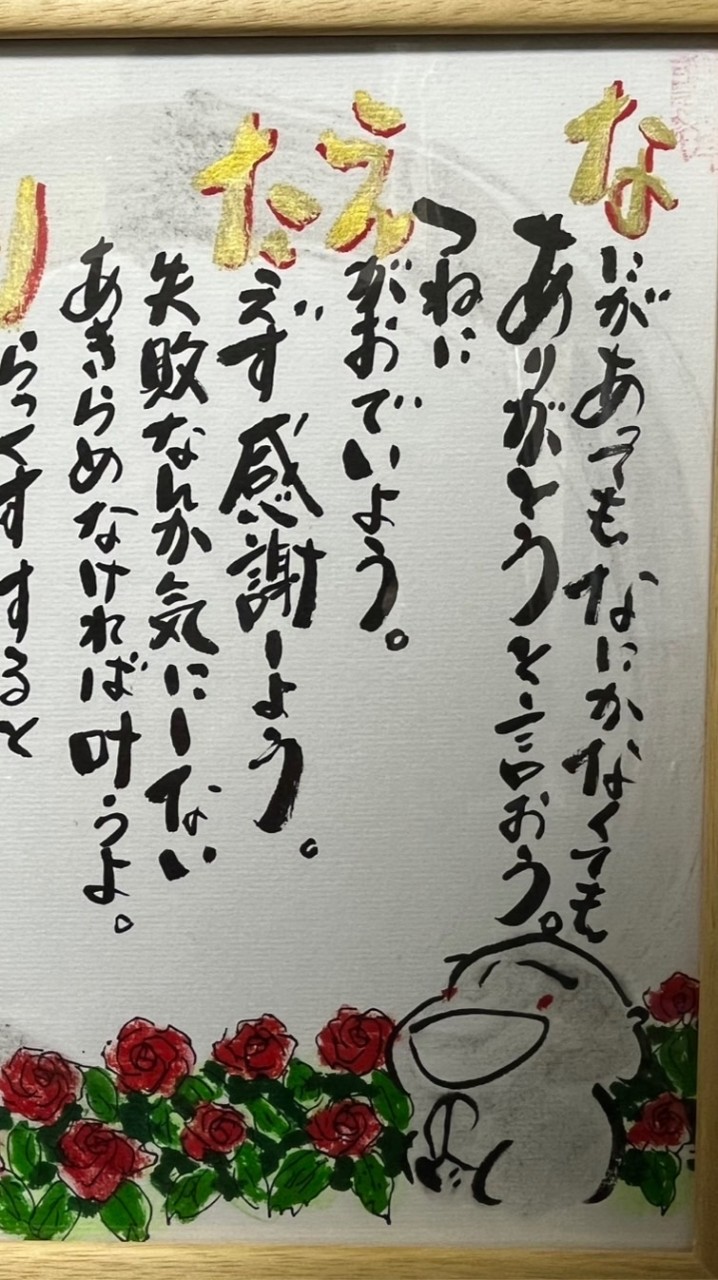 なにがあってもなにかなくても
ありがとうと言おう。
つねに
えがおでいよう。
たえず感謝しよう。
失敗なんか気にしない
あきらめなければ叶うよ。
りらっくすすると